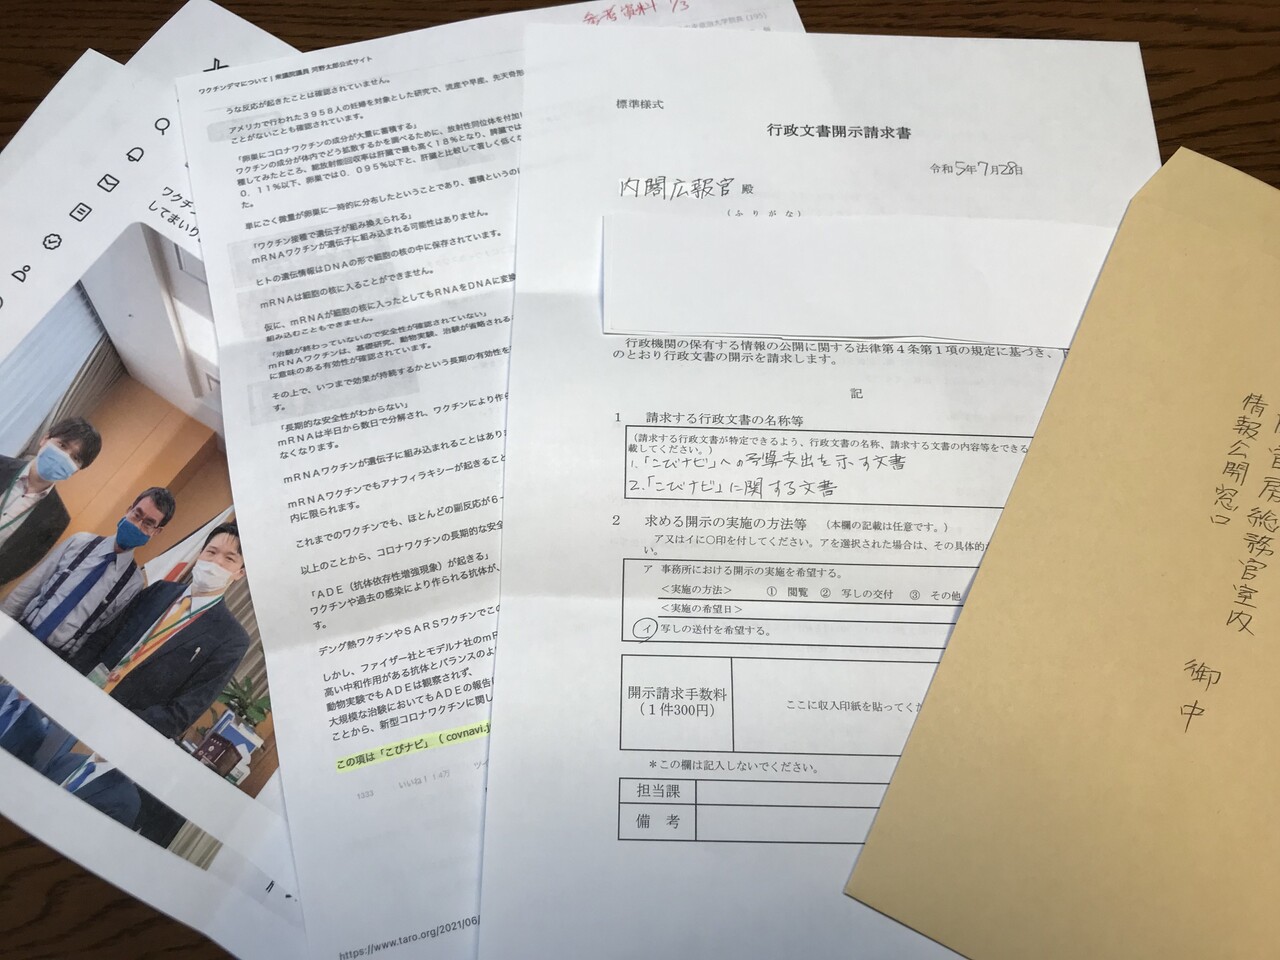 参考資料 1/3
ワクチンデマについて | 衆議院議員 河野太郎公式サイト
うな反応が起きたことは確認されていません。
アメリカで行われた3958人の妊婦を対象とした研究で、流産や早産、先天奇形
ことがないことも確認されています。
「卵巣にコロナワクチンの成分が大量に蓄積する」
ワクチンの成分が体内でどう拡散するかを調べるために、放射性同位体を付加
種してみたところ、総放射能回収率は肝臓で最も高く18%となり、脾臓では
0.11%以下、卵巣では0.095%以下と、肝臓と比較して著しく低く
た。
単にごく微量が卵巣に一時的に分布したということであり、蓄積というの
「ワクチン接種で遺伝子が組み換えられる」
mRNAワクチンが遺伝子に組み込まれる可能性はありません。
ヒトの遺伝情報はDNAの形で細胞の核の中に保存されています。
mRNAは細胞の核に入ることができません。
仮に、mRNAが細胞の核に入ったとしてもRNAをDNAに変換
組み込むこともできません。
「治験が終わっていないので安全性が確認されていない」
mRNAワクチンは、基礎研究、動物実験、治験が省略される
に意味のある有効性が確認されています。
その上で、いつまで効果が持続するかという長期の有効性を
す。
「長期的な安全性がわからない」
mRNAは半日から数日で分解され、ワクチンにより作ら
なくなります。
mRNAワクチンが遺伝子に組み込まれることはあり
mRNAワクチンでもアナフィラキシーが起きること
内に限られます。
これまでのワクチンでも、ほとんどの副反応が6-
以上のことから、コロナワクチンの長期的な安全
「ADE(抗体依存性増強現象)が起きる」
ワクチンや過去の感染により作られる抗体が、
す。
デング熱ワクチンやSARSワクチンでこの
しかし、ファイザー社とモデルナ社のmR
高い中和作用がある抗体とバランスのよ
動物実験でもADEは観察されず、
大規模な治験においてもADEの報告
ことから、新型コロナワクチンに関し
この項は「こびナビ」( covnavi.j
1333 いいね! 1.4万 ツイ
https://www.taro.org/2021/06/
ワクチン
してまいり
標準様式
行政文書開示請求書
令和5年7月28日
内閣広報官 殿
(ふりがな)
行政機関の保有する情報の公開に関する法律第4条第1項の規定に基づき、
のとおり行政文書の開示を請求します。
記
1 請求する行政文書の名称等
(請求する行政文書が特定できるよう、行政文書の名称、請求する文書の内容等をできる
載してください。)
1.「こびナビ」への予算支出を示す文書
2.「こびナビ」に関する文書
2 求める開示の実施の方法等 (本欄の記載は任意です。)
ア又はイに○印を付してください。アを選択された場合は、その具体的な
い。
ア 事務所における開示の実施を希望する。
<実施の方法> ① 閲覧 ② 写しの交付 ③ その他
<実施の希望日>
イ 写しの送付を希望する。
開示請求手数料
(1件300円)
ここに収入印紙を貼ってくだ
*この欄は記入しないでください。
担当課
備考
官房総務官室内
情報公開窓口
御中